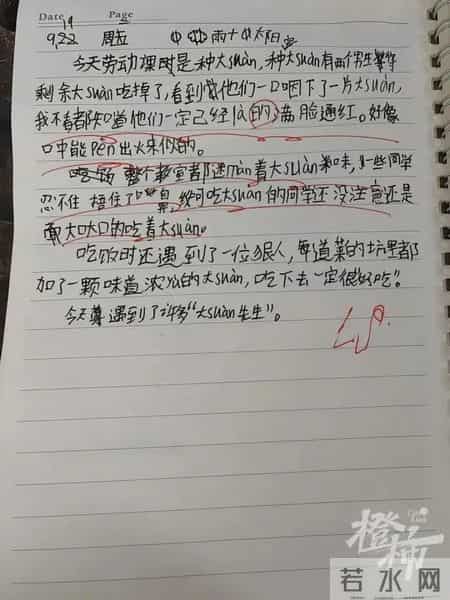 Date 19 Page
9.22 周五 中 中 雨+中太阳
今天劳动课时是种大suàn,种大suàn有两个男生拿
剩余大suàn吃掉了,看到他们一口咽下了一片大suàn,
我不看都知道他们一定已经là的满脸通红。好像
口中能pēn出火来似的。
吃饭 整个教室都迷màn着大suàn味,一些同学
忍不住捂住了口鼻,可吃大suàn的同学还没注意还是
大口大口的吃着大suàn。
吃饭时还遇到了一位狠人,每道菜的坑里都
加了一颗味道浓的大suàn,吃下去一定很好吃。
今天算遇到了许多“大suàn先生”。
橙柿
若水网